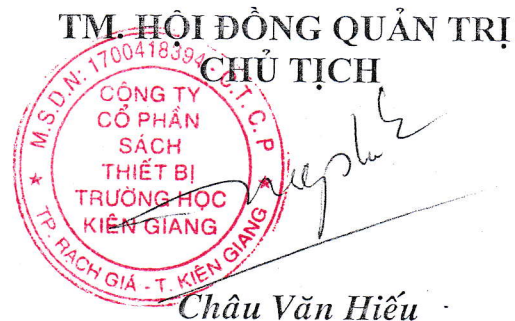 TM. HỘI ĐỒNG QUẢN TRỊ
CHỦ TỊCH
M.S.D.N: 1700418394 - C.T.C.P
CÔNG TY
CỔ PHẦN
SÁCH
THIẾT BỊ
TRƯỜNG HỌC
KIÊN GIANG
TP. RẠCH GIÁ - T. KIÊN GIANG
Châu Văn Hiếu